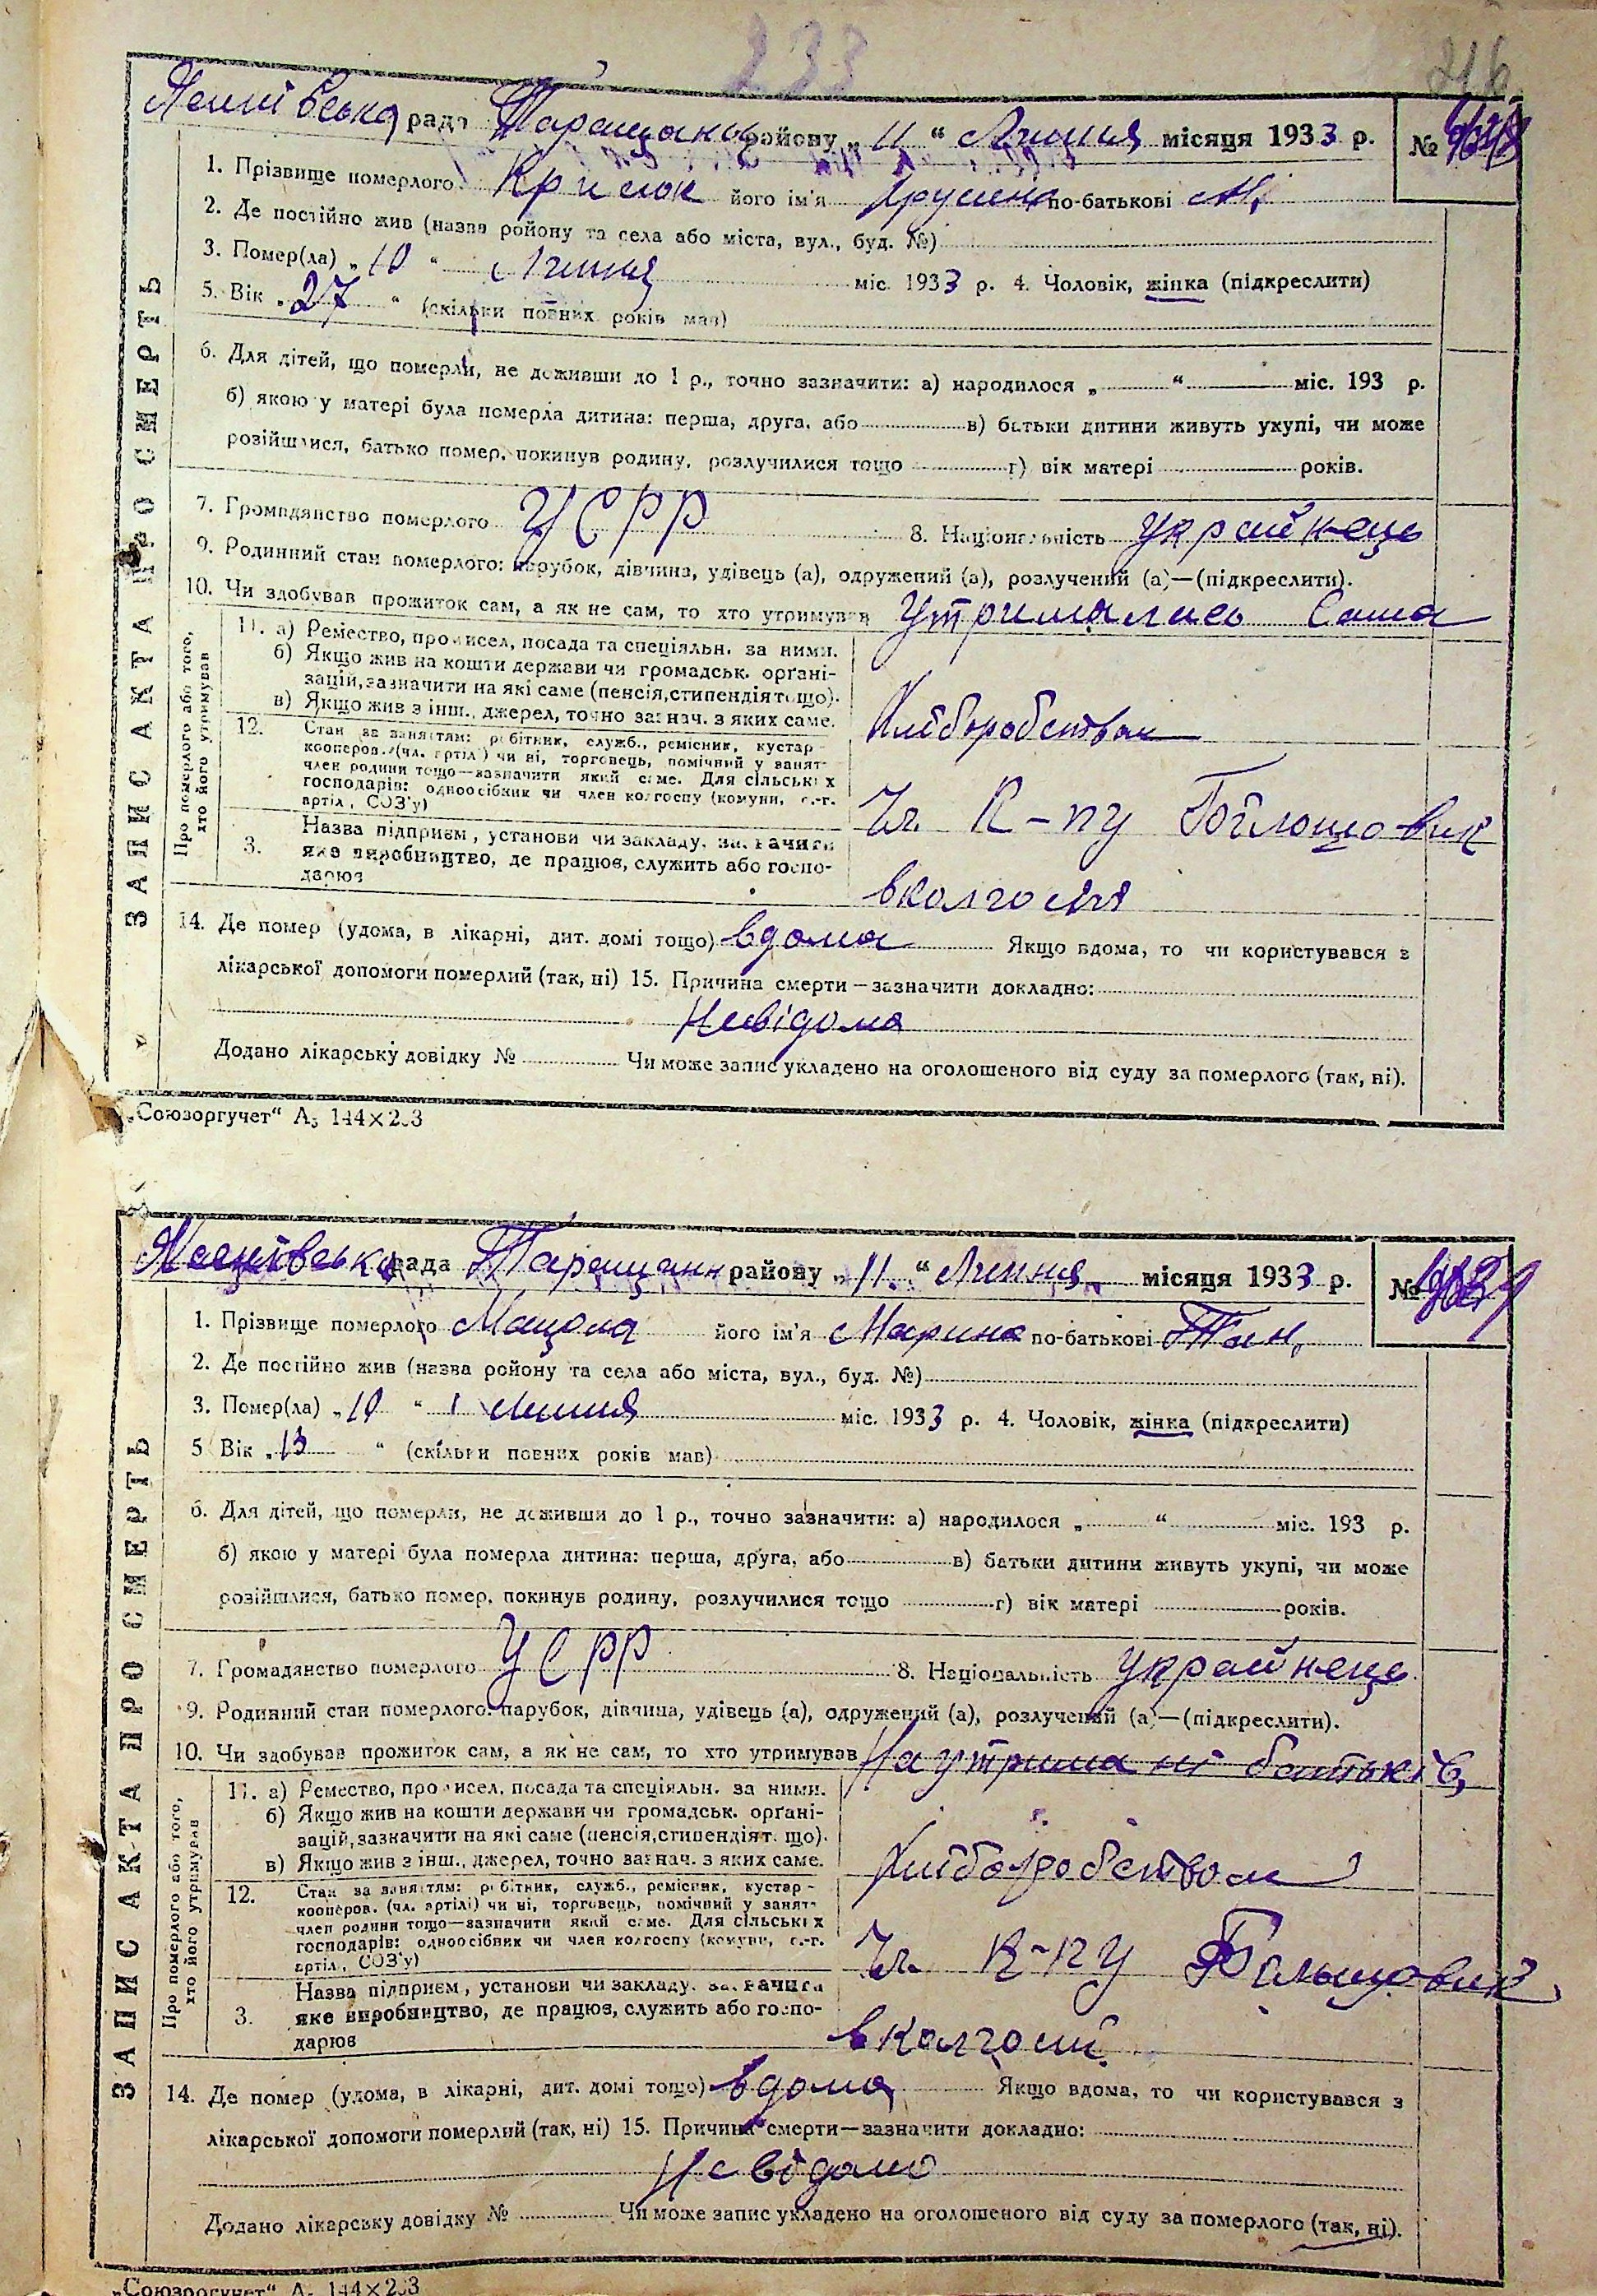 233
216
рада Таращанськ району „11“ Липня місяця 1933 р. №
1. Прізвище померлого Крисюк його ім'я по-батькові М.
2. Де постійно жив (назва ройону та села або міста, вул., буд. №)
3. Помер(ла) „10“ Липня міс. 1933 р. 4. Чоловік, жінка (підкреслити)
5. Вік „27“ (скільки повних років мав)
6. Для дітей, що померли, не доживши до 1 р., точно зазначити: а) народилося „ “ міс. 193 р.
б) якою у матері була померла дитина: перша, друга, або в) батьки дитини живуть укупі, чи може
розійшлися, батько помер, покинув родину, розлучилися тощо г) вік матері років.
7. Громадянство померлого УСРР 8. Національність українець
9. Родинний стан померлого: парубок, дівчина, удівець (а), одружений (а), розлучений (а)—(підкреслити).
10. Чи здобував прожиток сам, а як не сам, то хто утримував Утрималась Сама
ЗАПИС АКТА ПРО СМЕРТЬ
Про померлого або того, хто його утримував
11. а) Ремество, промисел, посада та спеціяльн. за ними.
б) Якщо жив на кошти держави чи громадськ. орґані-
зацій, зазначити на які саме (пенсія, стипендія тощо).
в) Якщо жив з інш., джерел, точно зазнач. з яких саме.
Хліборобством
12. Стан за заняттям: робітник, служб., ремісник, кустар-
кооперов. (чл. артілі) чи ні, торговець, помічний у занят-
член родини тощо—зазначити який саме. Для сільських
господарів: одноосібник чи член колгоспу (комуни, с.-г.
артіл, СОЗ'у)
Чл. К-пу
3. Назва підприєм, установи чи закладу, зазначити
яке виробництво, де працює, служить або госпо-
дарює
в колгоспі
14. Де помер (удома, в лікарні, дит. домі тощо) вдома Якщо вдома, то чи користувався з
лікарської допомоги померлий (так, ні) 15. Причина смерти—зазначити докладно:
Невідома
Додано лікарську довідку № Чи може запис укладено на оголошеного від суду за померлого (так, ні).
„Союзоргучет“ А₅ 144×203
рада Таращанн району „11.“ Липня місяця 1933 р. №
1. Прізвище померлого Мацола його ім'я Марина по-батькові
2. Де постійно жив (назва ройону та села або міста, вул., буд. №)
3. Помер(ла) „10“ Липня міс. 1933 р. 4. Чоловік, жінка (підкреслити)
5 Вік „13“ (скільки повних років мав)
6. Для дітей, що померли, не доживши до 1 р., точно зазначити: а) народилося „ “ міс. 193 р.
б) якою у матері була померла дитина: перша, друга, або в) батьки дитини живуть укупі, чи може
розійшлися, батько помер, покинув родину, розлучилися тощо г) вік матері років.
7. Громадянство померлого УСРР 8. Національність українець
9. Родинний стан померлого: парубок, дівчина, удівець (а), одружений (а), розлучений (а)—(підкреслити).
10. Чи здобував прожиток сам, а як не сам, то хто утримував На утримані батьків
ЗАПИС АКТА ПРО СМЕРТЬ
Про померлого або того, хто його утримував
11. а) Ремество, промисел, посада та спеціяльн. за ними.
б) Якщо жив на кошти держави чи громадськ. орґані-
зацій, зазначити на які саме (пенсія, стипендія т. що).
в) Якщо жив з інш., джерел, точно зазнач. з яких саме.
Хліборобством
12. Стан за заняттям: робітник, служб., ремісник, кустар-
кооперов. (чл. артілі) чи ні, торговець, помічний у занят-
член родини тощо—зазначити який саме. Для сільських
господарів: одноосібник чи член колгоспу (комуни, с.-г.
артіл, СОЗ'у)
Чл. К-пу Більшовик
3. Назва підприєм, установи чи закладу, зазначити
яке виробництво, де працює, служить або госпо-
дарює
в колгоспі
14. Де помер (удома, в лікарні, дит. домі тощо) вдома Якщо вдома, то чи користувався з
лікарської допомоги померлий (так, ні) 15. Причина смерти—зазначити докладно:
Невідомо
Додано лікарську довідку № Чи може запис укладено на оголошеного від суду за померлого (так, ні).
„Союзоргучет“ А₅ 144×203